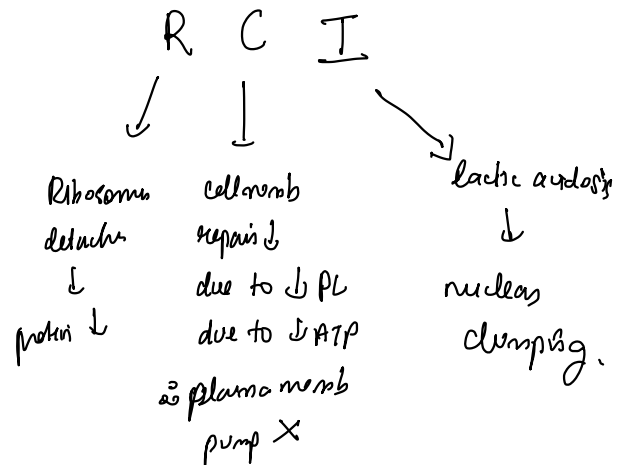 R C I
Ribosomes
detaches
↓
protein ↓
cell memb
repair ↓
due to ↓ PL
due to ↓ ATP
plasma memb
pump X
lactic acidosis
↓
nuclear
clumping.